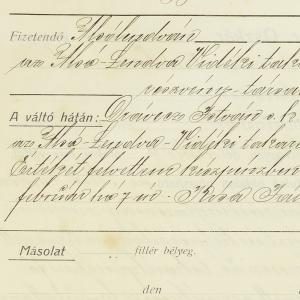 Fizetendő Alsólendván
az Alsó-Lendva Vidéki taka
részvény-társa
A váltó hátán: István s. k.
az Alsó-Lendva-Vidéki takaré
Értékét felvettem készpénzben
február hó 7-én
Másolat fillér bélyeg.
den